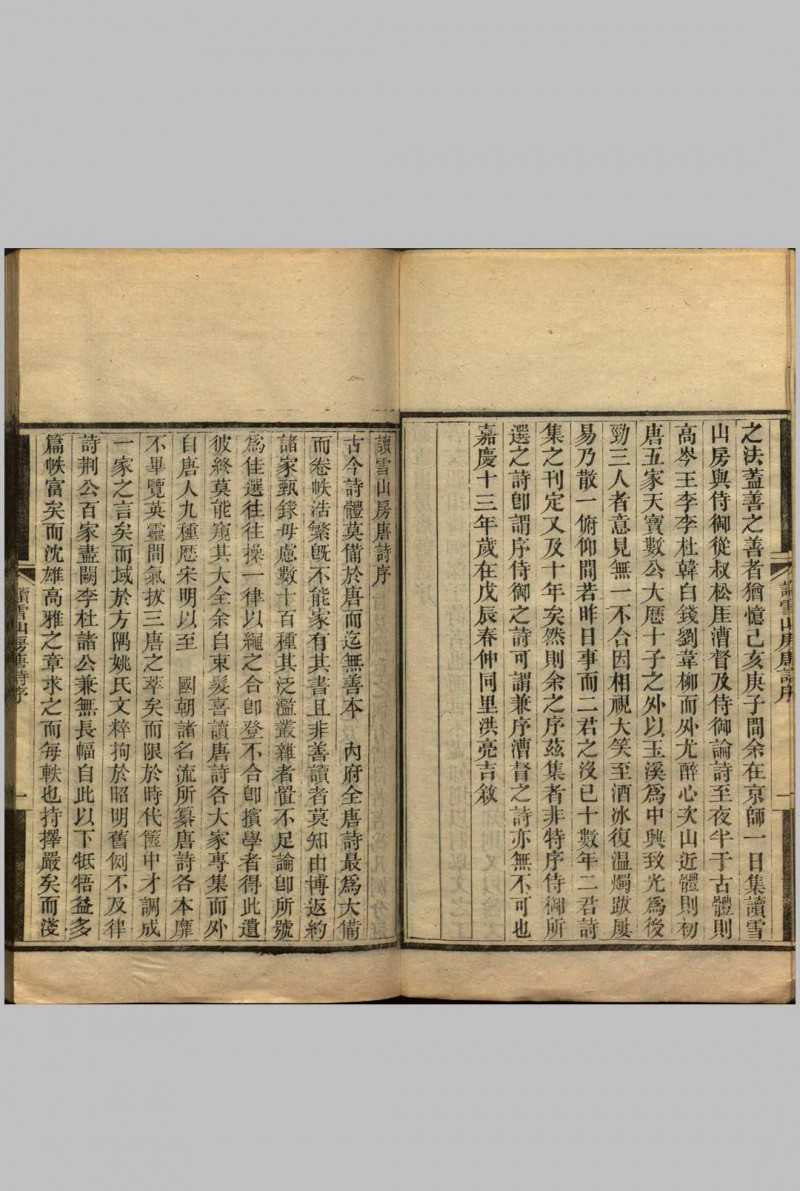 之法蓋善之善者猶憶己亥庚子間余在京師一日集讀雪
山房與侍御從叔松厓漕督及侍御論詩至夜半于古體則
高岑王李李杜韓白錢劉韋柳而外尤醉心次山近體則初
唐五家天寶數公大厯十子之外以玉溪爲中興致光爲後
勁三人者意見無一不合因相視大笑至酒冰復温燭跋屢
易乃散一俯仰間若昨日事而二君之沒已十數年二君詩
集之刊定又及十年矣然則余之序茲集者非特序侍御所
選之詩卽謂序侍御之詩可謂兼序漕督之詩亦無不可也
嘉慶十三年歲在戊辰春仲同里洪亮吉敘
讀雪山房唐詩序
一
讀雪山房唐詩序
古今詩體莫備於唐而迄無善本 內府全唐詩最爲大備
而卷帙浩繁旣不能家有其書且非善讀者莫知由博返約
諸家甄錄毋慮數十百種其泛濫叢雜者置不足論卽所號
爲佳選往往操一律以繩之合卽登不合卽擯學者得此遺
彼終莫能窺其大全余自束髮喜讀唐詩各大家專集而外
自唐人九種厯宋明以至 國朝諸名流所纂唐詩各本靡
不畢覽英靈間氣拔三唐之萃矣而限於時代篋中才調成
一家之言矣而域於方隅姚氏文粹拘於昭明舊例不及律
詩荆公百家盡闕李杜諸公兼無長幅自此以下牴牾益多
篇帙富矣而沈雄高雅之章求之而每軼也持擇嚴矣而淺
讀雪山房唐詩序
一